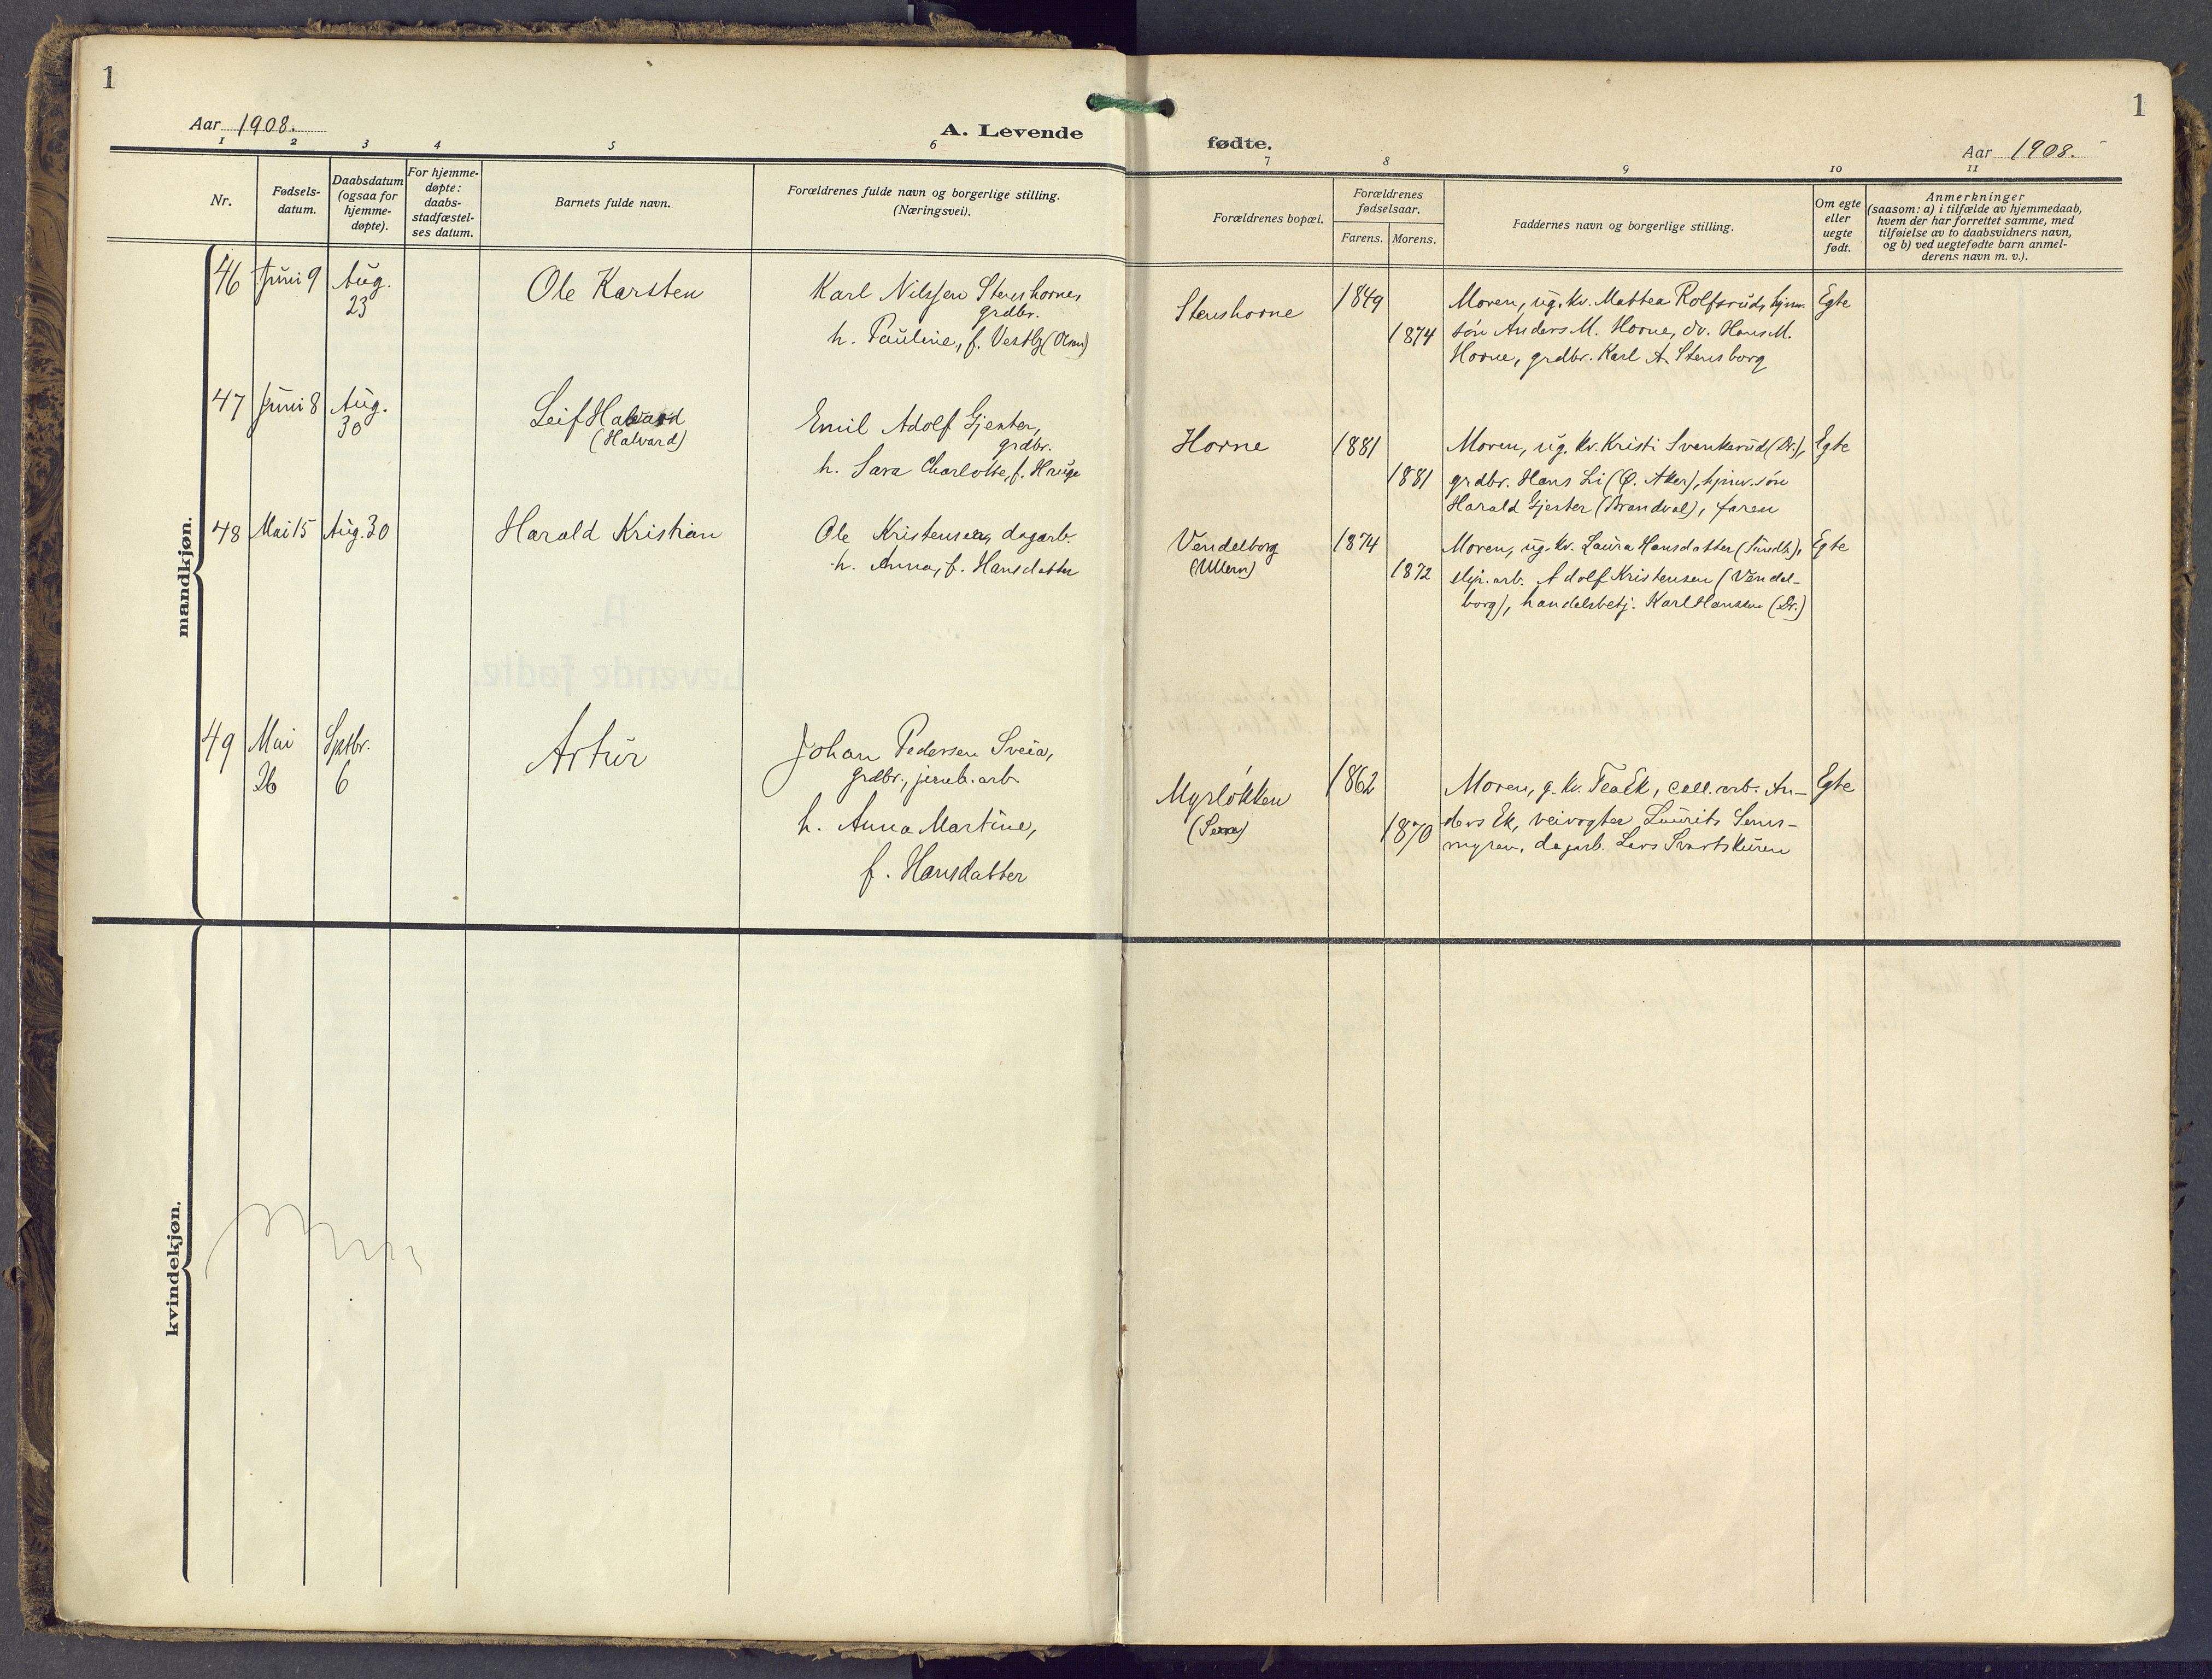 1
1
Aar 1908.
A. Levende
fødte.
Aar 1908.
1 2 3 4 5 6
7 8 9 10 11
Nr.
Fødsels-
datum.
Daabsdatum
(ogsaa for
hjemme-
døpte).
For hjemme-
døpte:
daabs-
stadfæstel-
ses datum.
Barnets fulde navn.
Forældrenes fulde navn og borgerlige stilling.
(Næringsvei).
Forældrenes bopæl.
Forældrenes
fødselsaar.
Farens. Morens.
Faddernes navn og borgerlige stilling.
Om egte
eller
uegte
født.
Anmerkninger
(saasom: a) i tilfælde av hjemmedaab,
hvem der har forrettet samme, med
tilføielse av to daabsvidners navn,
og b) ved uegtefødte barn anmel-
derens navn m. v.).
mandkjøn.
46
Juni 9
Aug.
23
Ole Karsten
Karl Nilssen Stenshorne,
grdbr.
h. Pauline, f. Vestby (Olsen)
Stenshorne
1849
1874
Moren, ug. kv. Mattea Rolfsrud, hjmv.
søn Anders M. Horne, do. Hans M.
Horne, grdbr. Karl A. Stensborg
Egte
47
Juni 8
Aug.
30
Leif Halvard
(Halvard)
Emil Adolf Gjester,
grdbr.
h. Sara Charlotte, f. Hauge
Horne
1881
1881
Moren, ug. kv. Kristi Svenkerud (Dr.),
grdbr. Hans Li (Ø. Aker), hjmv. søn
Harald Gjester (Brandval), faren
Egte
48
Mai 15
Aug. 30
Harald Kristian
Ole Kristensen, dagarb.
h. Anna, f. Hansdatter
Vendelborg
(Ullern)
1874
1872
Moren, ug. kv. Laura Hansdatter
arb. Adolf Kristensen (Vendel-
borg), handelsbetj. Karl Hansen (Dr.)
Egte
49
Mai
26
Sptbr.
6
Artur
Johan Pedersen Sveia,
grdbr., jernb. arb.
h. Anna Martine,
f. Hansdatter
Myrløkken
1862
1870
Moren, g. kv. Tea Ek, cell. arb. An-
ders Ek, veivogter Laurits Sems-
myren, dagarb. Lars Svartskuren
Egte
kvindekjøn.